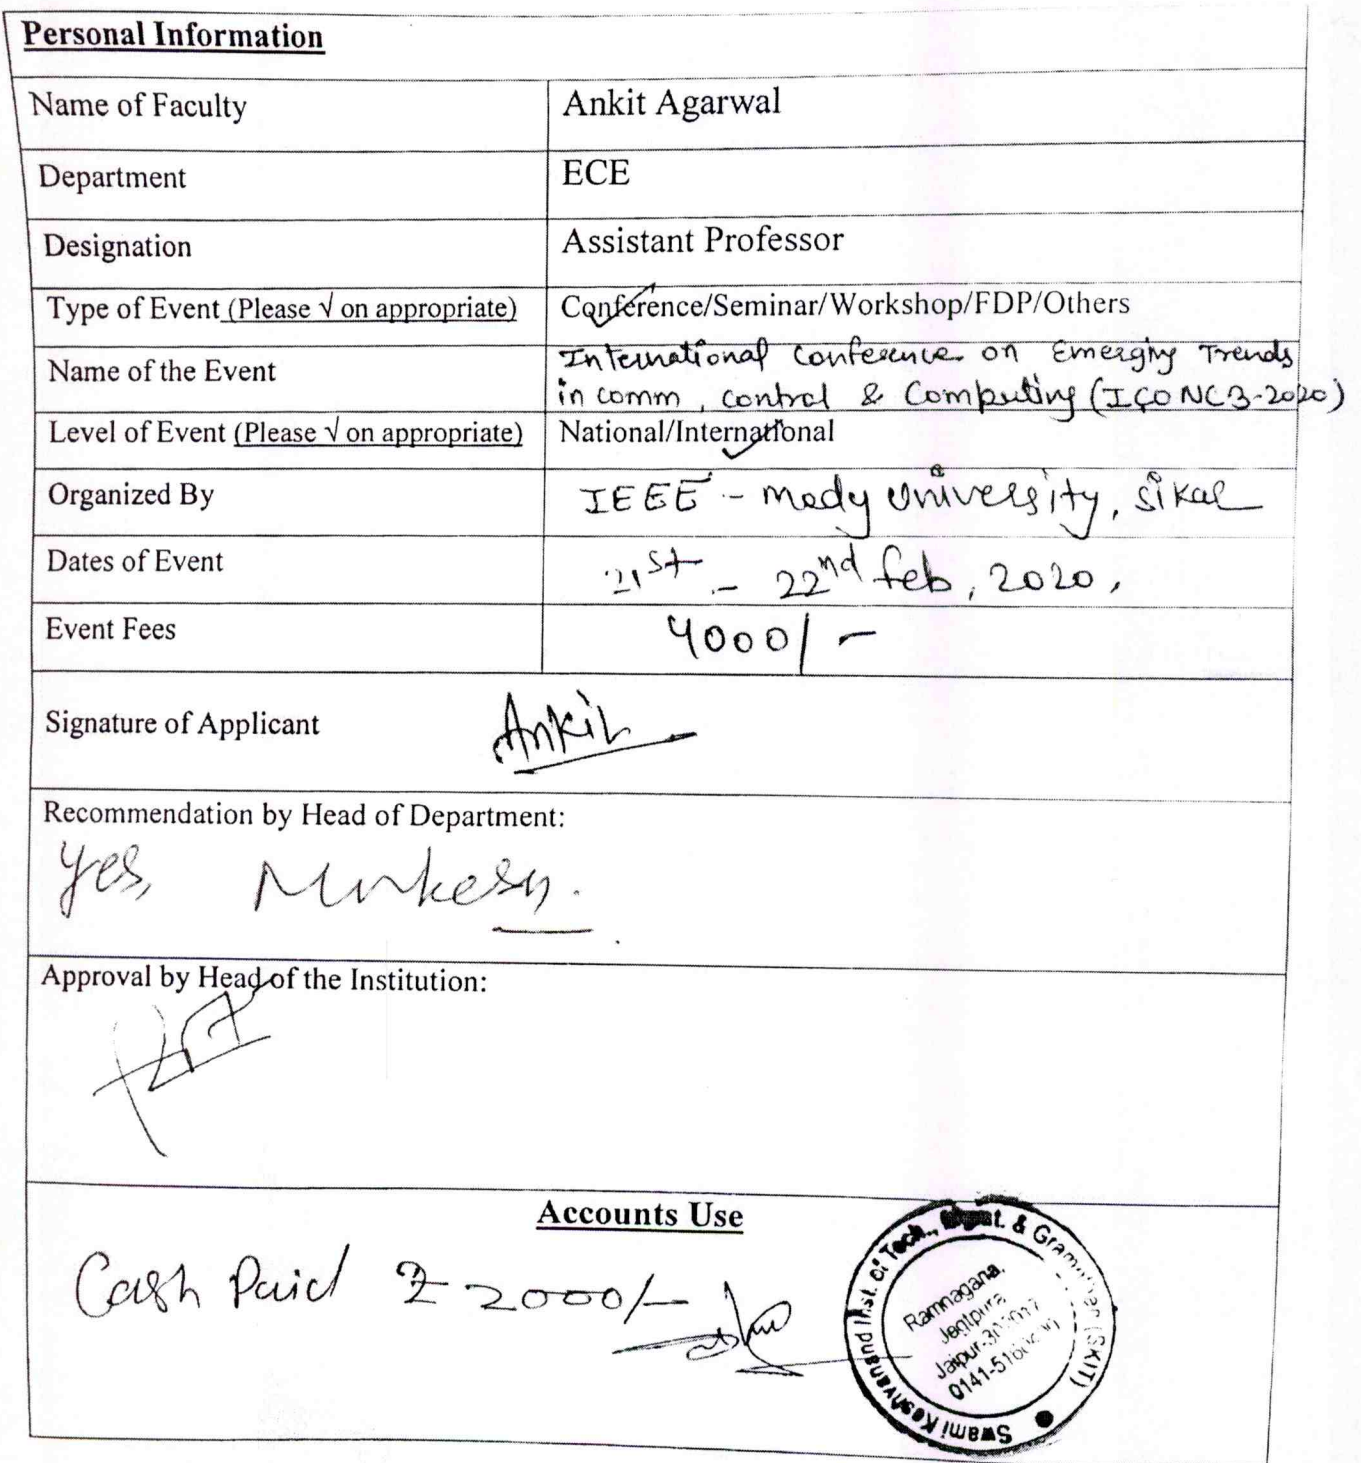 Personal Information
Name of Faculty Ankit Agarwal
Department ECE
Designation Assistant Professor
Type of Event (Please √ on appropriate) Conference/Seminar/Workshop/FDP/Others
Name of the Event International Conference on Emerging Trends
in comm, control & Computing (ICONC3-2020)
Level of Event (Please √ on appropriate) National/International
Organized By IEEE - mody University, Sikar
Dates of Event 21st - 22nd feb, 2020,
Event Fees 4000/-
Signature of Applicant Ankit
Recommendation by Head of Department:
Yes, Mukesh.
Approval by Head of the Institution:
Accounts Use
Cash Paid ₹ 2000/-
Swami Keshvanand Inst. of Tech., Mgmt. & Gramothan (SKIT)
Ramnagaria,
Jagtpura
Jaipur-302017